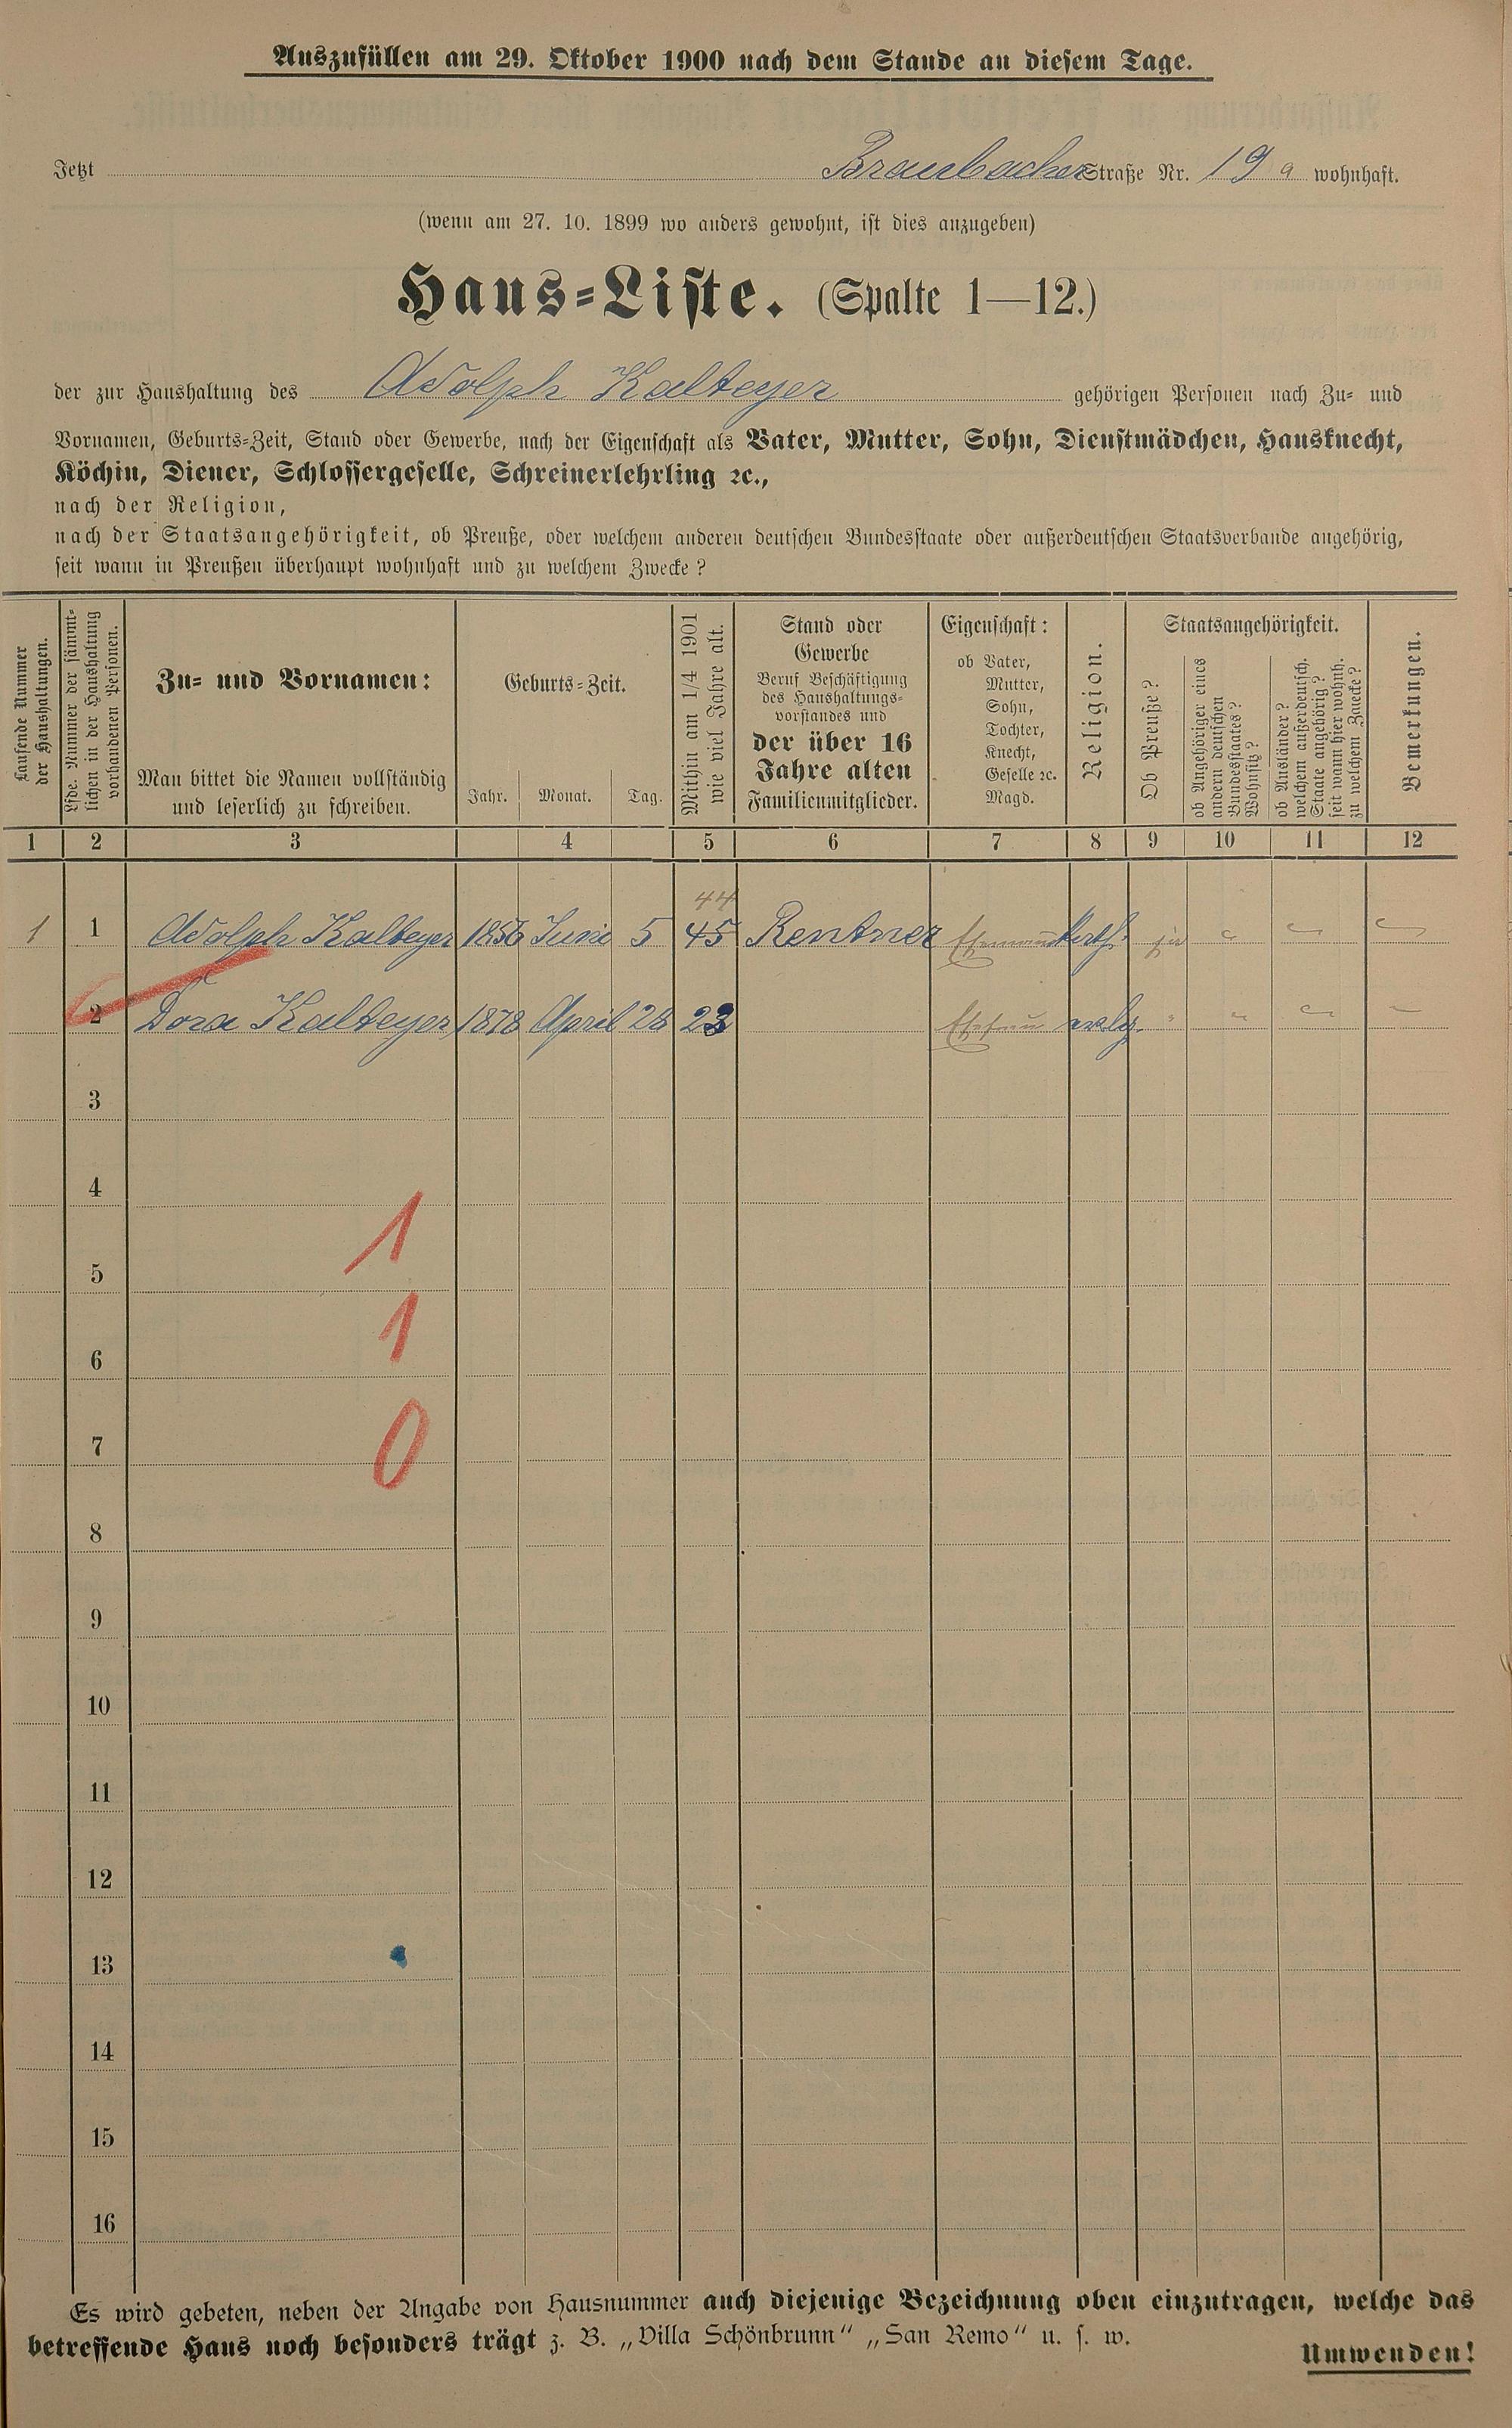 Auszufüllen am 29. Oktober 1900 nach dem Stande an diesem Tage.
Jetzt Braubacher Straße Nr. 19 a wohnhaft.
(wenn am 27. 10. 1899 wo anders gewohnt, ist dies anzugeben)
Haus-Liste. (Spalte 1—12.)
der zur Haushaltung des Adolph Kalteyer gehörigen Personen nach Zu- und
Vornamen, Geburts-Zeit, Stand oder Gewerbe, nach der Eigenschaft als Vater, Mutter, Sohn, Dienstmädchen, Hausknecht,
Köchin, Diener, Schlossergeselle, Schreinerlehrling ꝛc.,
nach der Religion,
nach der Staatsangehörigkeit, ob Preuße, oder welchem anderen deutschen Bundesstaate oder außerdeutschen Staatsverbande angehörig,
seit wann in Preußen überhaupt wohnhaft und zu welchem Zwecke?
Laufende Nummer
der Haushaltungen.
Lfde. Nummer der sämmt-
lichen in der Haushaltung
vorhandenen Personen.
Zu- und Vornamen:
Man bittet die Namen vollständig
und leserlich zu schreiben.
Geburts-Zeit.
Jahr. Monat. Tag.
Mithin am 1/4 1901
wie viel Jahre alt.
Stand oder
Gewerbe
Beruf Beschäftigung
des Haushaltungs-
vorstandes und
der über 16
Jahre alten
Familienmitglieder.
Eigenschaft:
ob Vater,
Mutter,
Sohn,
Tochter,
Knecht,
Geselle ꝛc.
Magd.
Religion.
Staatsangehörigkeit.
Ob Preuße?
ob Angehöriger eines
andern deutschen
Bundesstaates?
Wohnsitz?
ob Ausländer?
welchem außerdeutsch.
Staate angehörig?
seit wann hier wohnh.
zu welchem Zwecke?
Bemerkungen.
1 2 3 4 5 6 7 8 9 10 11 12
44
1 1 Adolph Kalteyer 1856 Juni 5 45 Rentner Ehemann kath. ja
2 Dora Kalteyer 1878 April 28 23 Ehefrau evlg. "
3
4
1
5
1
6
0
7
8
9
10
11
12
13
14
15
16
Es wird gebeten, neben der Angabe von Hausnummer auch diejenige Bezeichnung oben einzutragen, welche das
betreffende Haus noch besonders trägt z. B. „Villa Schönbrunn“ „San Remo“ u. s. w.
Umwenden!